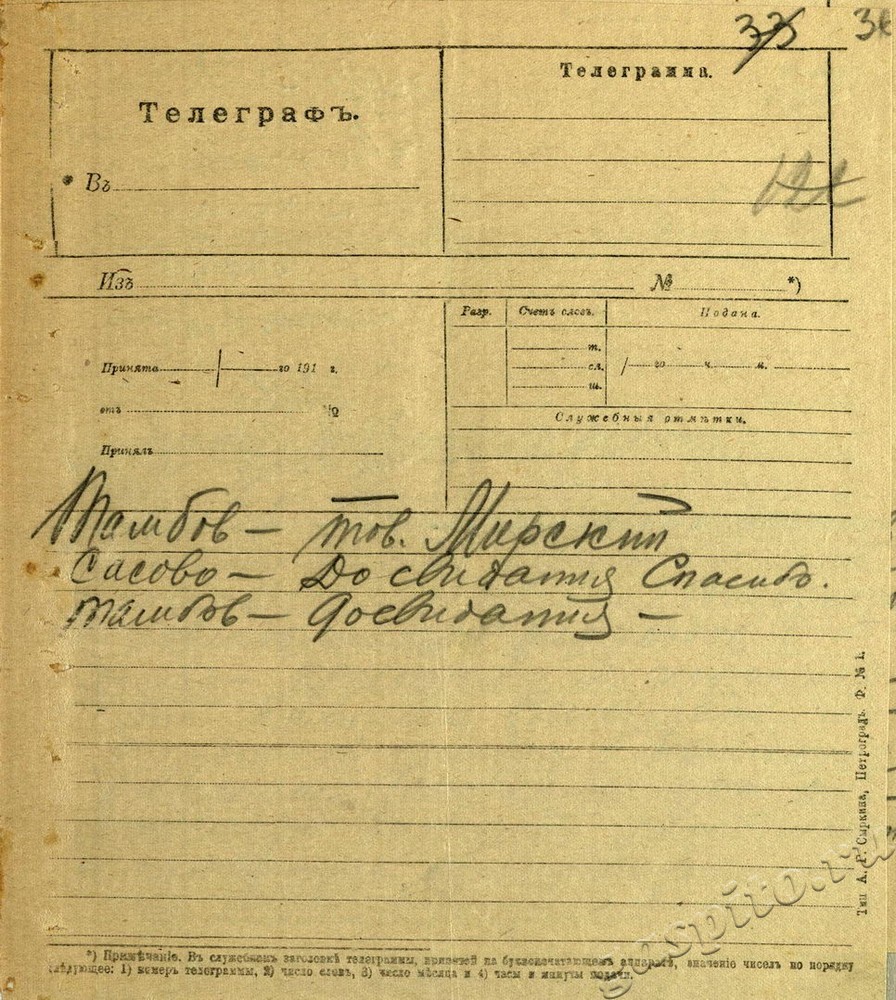 33
Телеграфъ.
Въ
Телеграмма.
Изъ № *)
Принята го 191 г.
отъ №
Принялъ
Разр. Счетъ словъ. Подана.
т.
сл. го ч. м.
ш.
Служебныя отмѣтки.
Тамбов – тов. Мирский
Сасово – До свидания Спасибо.
Тамбов – До свидания –
Тип А. Р. Сыркина, Петроградъ Ф. № 1.
*) Примѣчаніе. Въ служебномъ заголовкѣ телеграммы, принятой на буквопечатающемъ аппаратѣ, значеніе чиселъ по порядку
слѣдующее: 1) номеръ телеграммы, 2) число словъ, 3) число мѣсяца и 4) часы и минуты подачи.
gaspito.ru